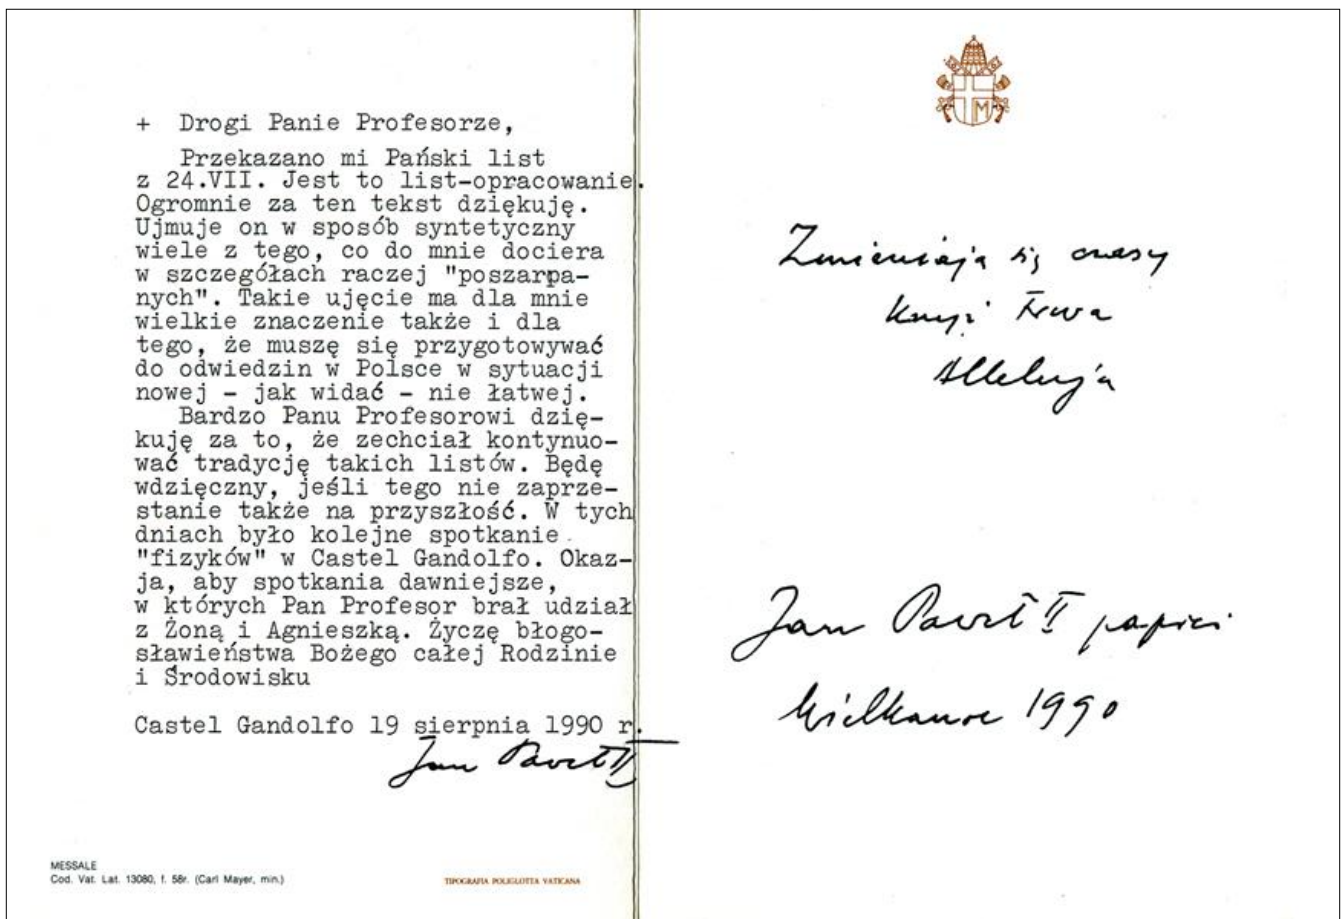 + Drogi Panie Profesorze,
Przekazano mi Pański list
z 24.VII. Jest to list-opracowanie.
Ogromnie za ten tekst dziękuję.
Ujmuje on w sposób syntetyczny
wiele z tego, co do mnie dociera
w szczegółach raczej "poszarpa-
nych". Takie ujęcie ma dla mnie
wielkie znaczenie także i dla
tego, że muszę się przygotowywać
do odwiedzin w Polsce w sytuacji
nowej - jak widać - nie łatwej.
Bardzo Panu Profesorowi dzię-
kuję za to, że zechciał kontynuo-
wać tradycję takich listów. Będę
wdzięczny, jeśli tego nie zaprze-
stanie także na przyszłość. W tych
dniach było kolejne spotkanie
"fizyków" w Castel Gandolfo. Okaz-
ja, aby spotkania dawniejsze,
w których Pan Profesor brał udział
z Żoną i Agnieszką. Życzę błogo-
sławieństwa Bożego całej Rodzinie
i Środowisku
Castel Gandolfo 19 sierpnia 1990 r.
Jan Paweł II
MESSALE
Cod. Vat. Lat. 13080, f. 58r. (Carl Mayer, min.)
TIPOGRAFIA POLIGLOTTA VATICANA
M
Zmieniają się czasy
Krzyż trwa
Alleluja
Jan Paweł II papież
Wielkanoc 1990